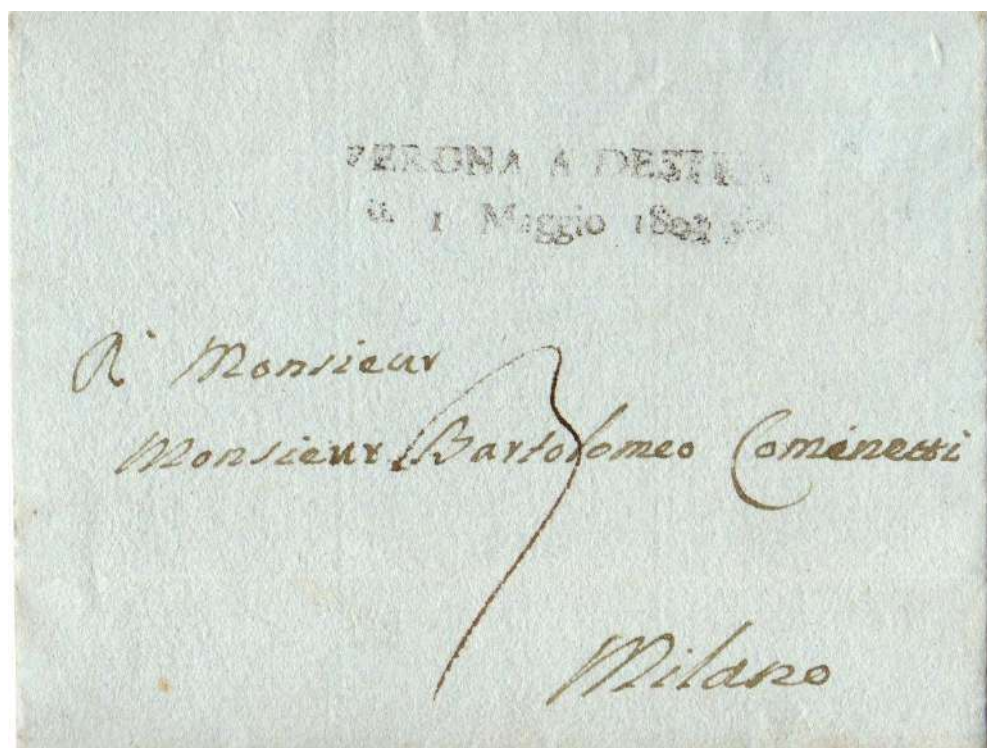 VERONA A
1 Maggio
A Monsieur
Monsieur Bartolomeo Cominetti
3
Milano